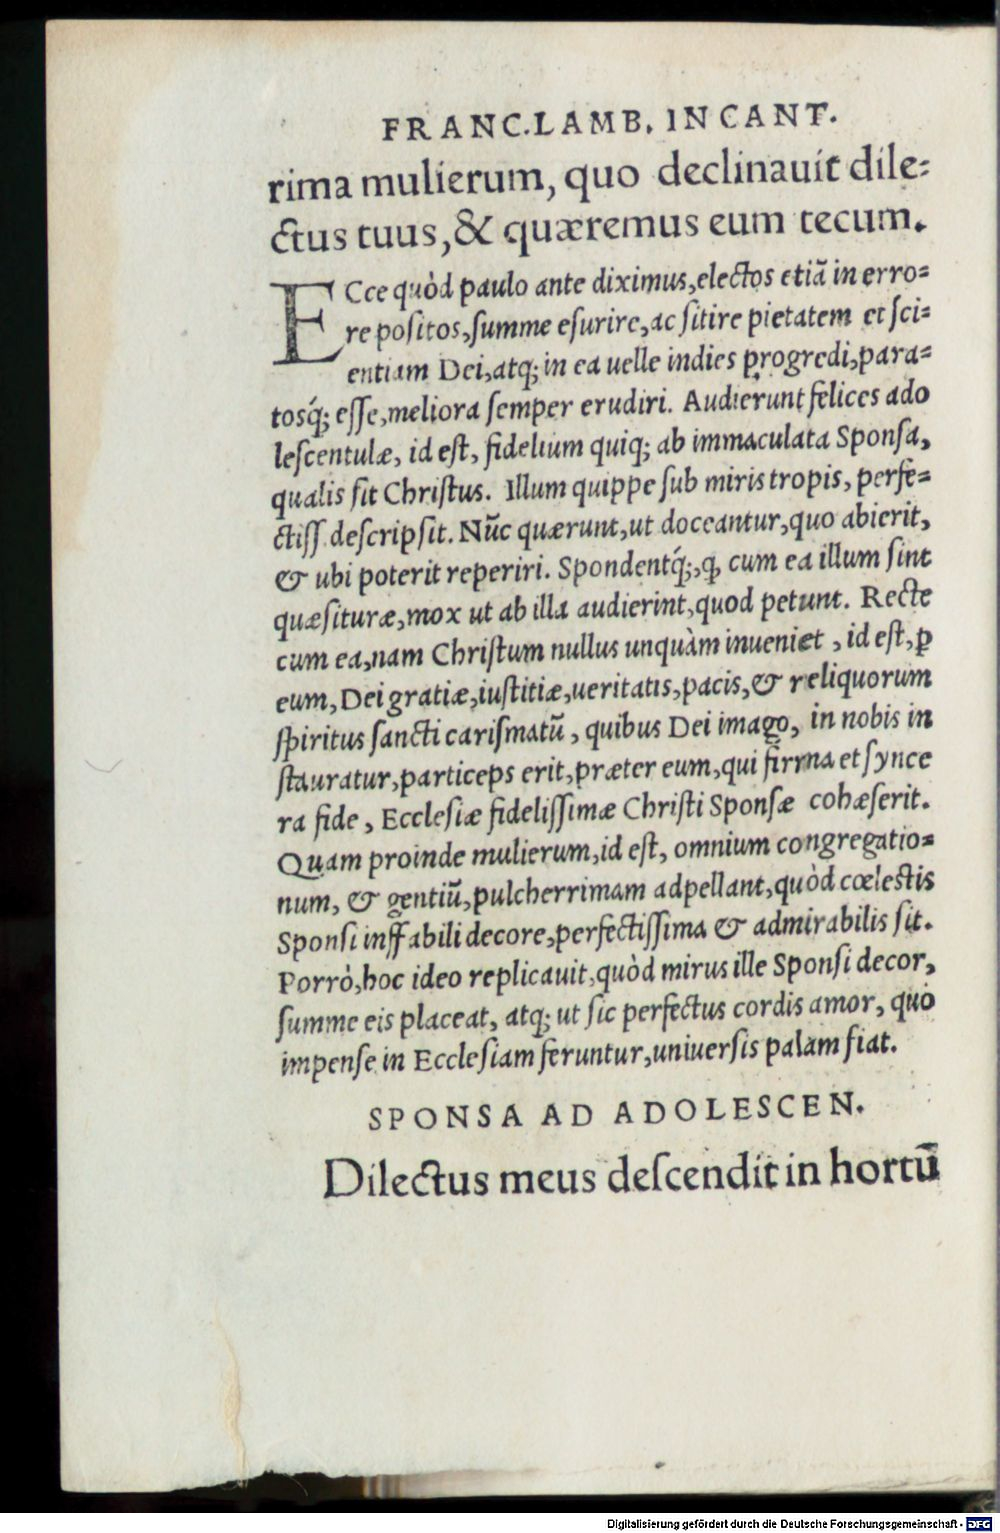 FRANC. LAMB. IN CANT.
rima mulierum, quo declinauit dile⸗
ctus tuus, & quæremus eum tecum.
ECce quòd paulo ante diximus, electos etiã in erro⸗
re positos, summe esurire, ac sitire pietatem et sci⸗
entiam Dei, atq; in ea uelle indies progredi, para⸗
tosq́; esse, meliora semper erudiri. Audierunt felices ado
lescentulæ, id est, fidelium quiq; ab immaculata Sponsa,
qualis sit Christus. Illum quippe sub miris tropis, perfe⸗
ctiss descripsit. Nũc quærunt, ut doceantur, quo abierit,
& ubi poterit reperiri. Spondentq́;, ꝙ cum ea illum sint
quæsituræ, mox ut ab illa audierint, quod petunt. Recte
cum ea, nam Christum nullus unquàm inueniet, id est, ꝑ
eum, Dei gratiæ, iustitiæ, ueritatis, pacis, & reliquorum
spiritus sancti carismatũ, quibus Dei imago, in nobis in
stauratur, particeps erit, præter eum, qui firma et synce
ra fide, Ecclesiæ fidelissimæ Christi Sponsæ cohæserit.
Quam proinde mulierum, id est, omnium congregatio⸗
num, & gentiũ, pulcherrimam adpellant, quòd cœlestis
Sponsi inffabili decore, perfectissima & admirabilis sit.
Porrò, hoc ideo replicauit, quòd mirus ille Sponsi decor,
summe eis placeat, atq; ut sic perfectus cordis amor, quò
impense in Ecclesiam feruntur, uniuersis palàm fiat.
SPONSA AD ADOLESCEN.
Dilectus meus descendit in hortũ
Digitalisierung gefördert durch die Deutsche Forschungsgemeinschaft - DFG